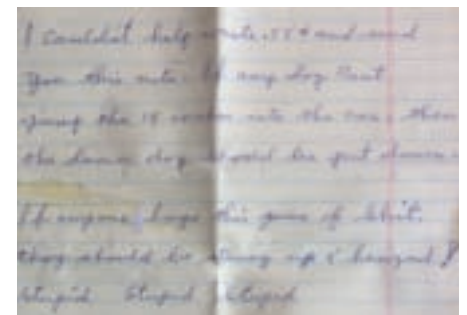 I couldn't help note .55¢ and send
you this note. If any dog that
jump the 15 into the car, then
the damn dog should be put down.
If anyone buys this piece of shit,
they should be strung up & hanged!
Stupid Stupid Stupid